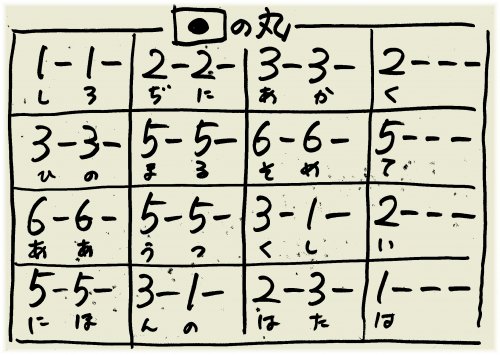 の丸
1-1- 2-2- 3-3- 2---
しろ ぢに あか く
3-3- 5-5- 6-6- 5---
ひの まる そめ て
6-6- 5-5- 3-1- 2---
ああ うつ くし い
5-5- 3-1- 2-3- 1---
にほ んの はた は